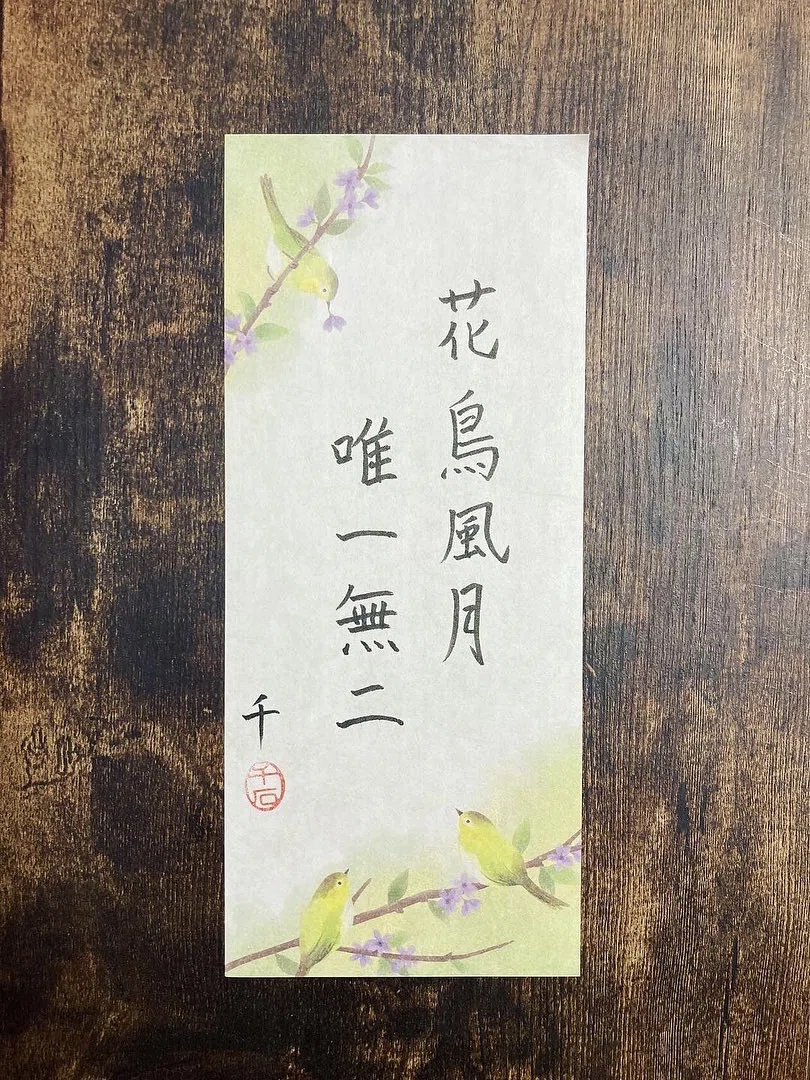 花鳥風月
唯一無二
千
千石